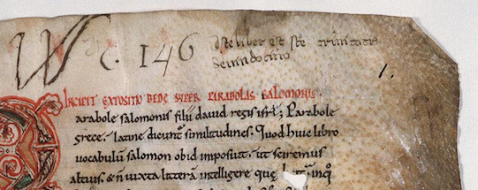 W C. 146 Iste liber est ste trinitatis
1.
INCIPIT EXPOSITIO BEDE SUPER PARABOLIS SALOMONIS.
arabole salomonis filii dauid regis isrl; Parabole
grece, latine dicunt similitudines. Quod huic libro
uocabulū salomon ob id imposuit, ut sciremus
altius, & ñ iuxta litterā intelligere que